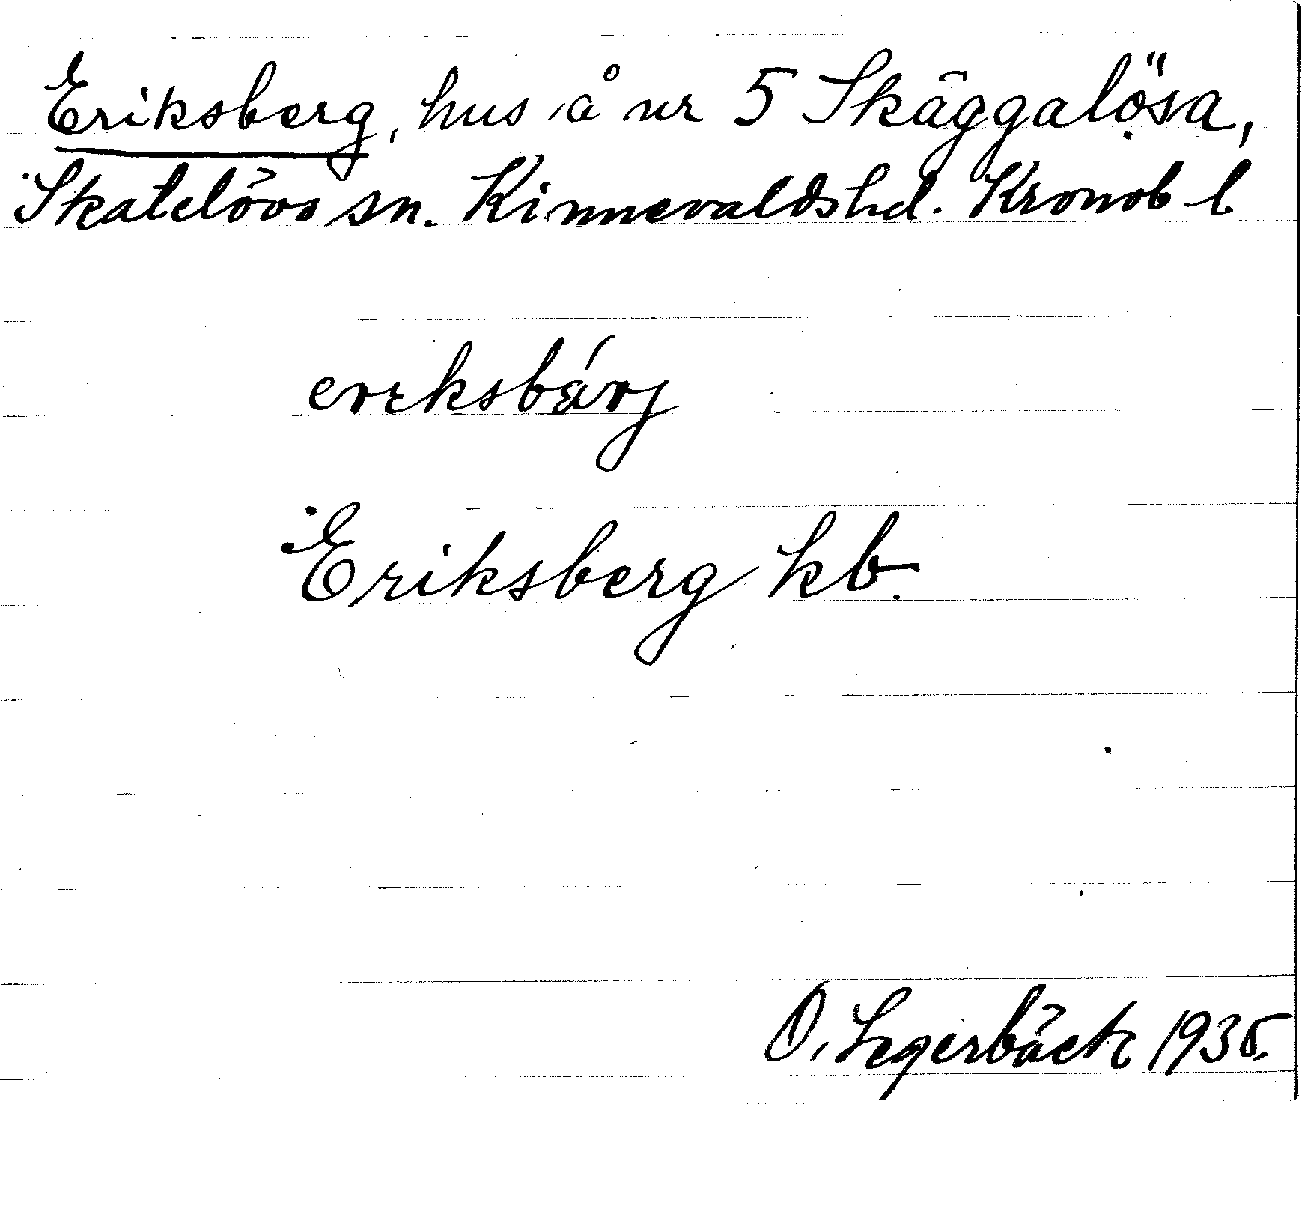 Eriksberg, hus å nr 5 Skäggalösa,
Skatelövs sn. Kinnevalds hd. Kronob l
eriksbärj
Eriksberg kb.
O. Legerbäck 1935.